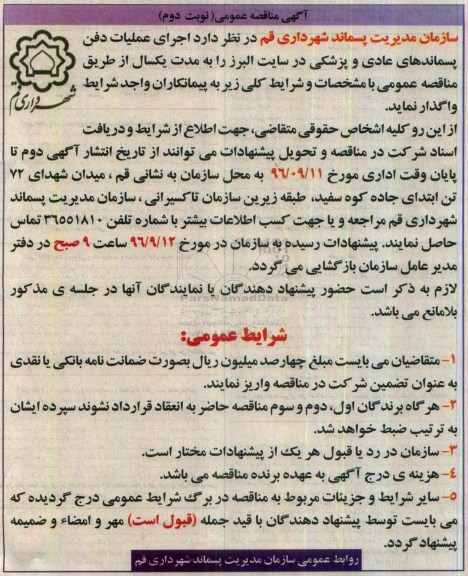 آگهی مناقصه عمومی( نوبت دوم)
سازمان مدیریت پسماند شهرداری قم در نظر دارد اجرای عملیات دفن
پسماندهای عادی و پزشکی در سایت البرز را به مدت یکسال از طریق
مناقصه عمومی با مشخصات و شرایط کلی زیر به پیمانکاران واجد شرایط
واگذار نماید.
شهرداری قم
از این رو کلیه اشخاص حقوقی متقاضی، جهت اطلاع از شرایط و دریافت
اسناد شرکت در مناقصه و تحویل پیشنهادات می توانند از تاریخ انتشار آگهی دوم تا
پایان وقت اداری مورخ ۹۶/۰۹/۱۱ به محل سازمان به نشانی قم ، میدان شهدای ۷۲
تن ابتدای جاده کوه سفید، طبقه زیرین سازمان تاکسیرانی ، سازمان مدیریت پسماند
شهرداری قم مراجعه و یا جهت کسب اطلاعات بیشتر با شماره تلفن ۳۶۵۵۱۸۱۰ تماس
حاصل نمایند. پیشنهادات رسیده به سازمان در مورخ ۹۶/۹/۱۲ ساعت ۹ صبح در دفتر
مدیر عامل سازمان بازگشایی می گردد.
ParsNamadData
لازم به ذکر است حضور پیشنهاد دهندگان یا نمایندگان آنها در جلسه ی مذکور
بلامانع می باشد.
شرایط عمومی:
۱- متقاضیان می بایست مبلغ چهارصد میلیون ریال بصورت ضمانت نامه بانکی یا نقدی
به عنوان تضمین شرکت در مناقصه واریز نمایند.
۲- هر گاه برندگان اول، دوم و سوم مناقصه حاضر به انعقاد قرارداد نشوند سپرده ایشان
به ترتیب ضبط خواهد شد.
۳- سازمان در رد یا قبول هر یک از پیشنهادات مختار است.
۴- هزینه ی درج آگهی به عهده برنده مناقصه می باشد.
۵- سایر شرایط و جزییات مربوط به مناقصه در برگ شرایط عمومی درج گردیده که
می بایست توسط پیشنهاد دهندگان با قید جمله (قبول است) مهر و امضاء و ضمیمه
پیشنهاد گردد.
روابط عمومی سازمان مدیریت پسماند-شهرداری قم